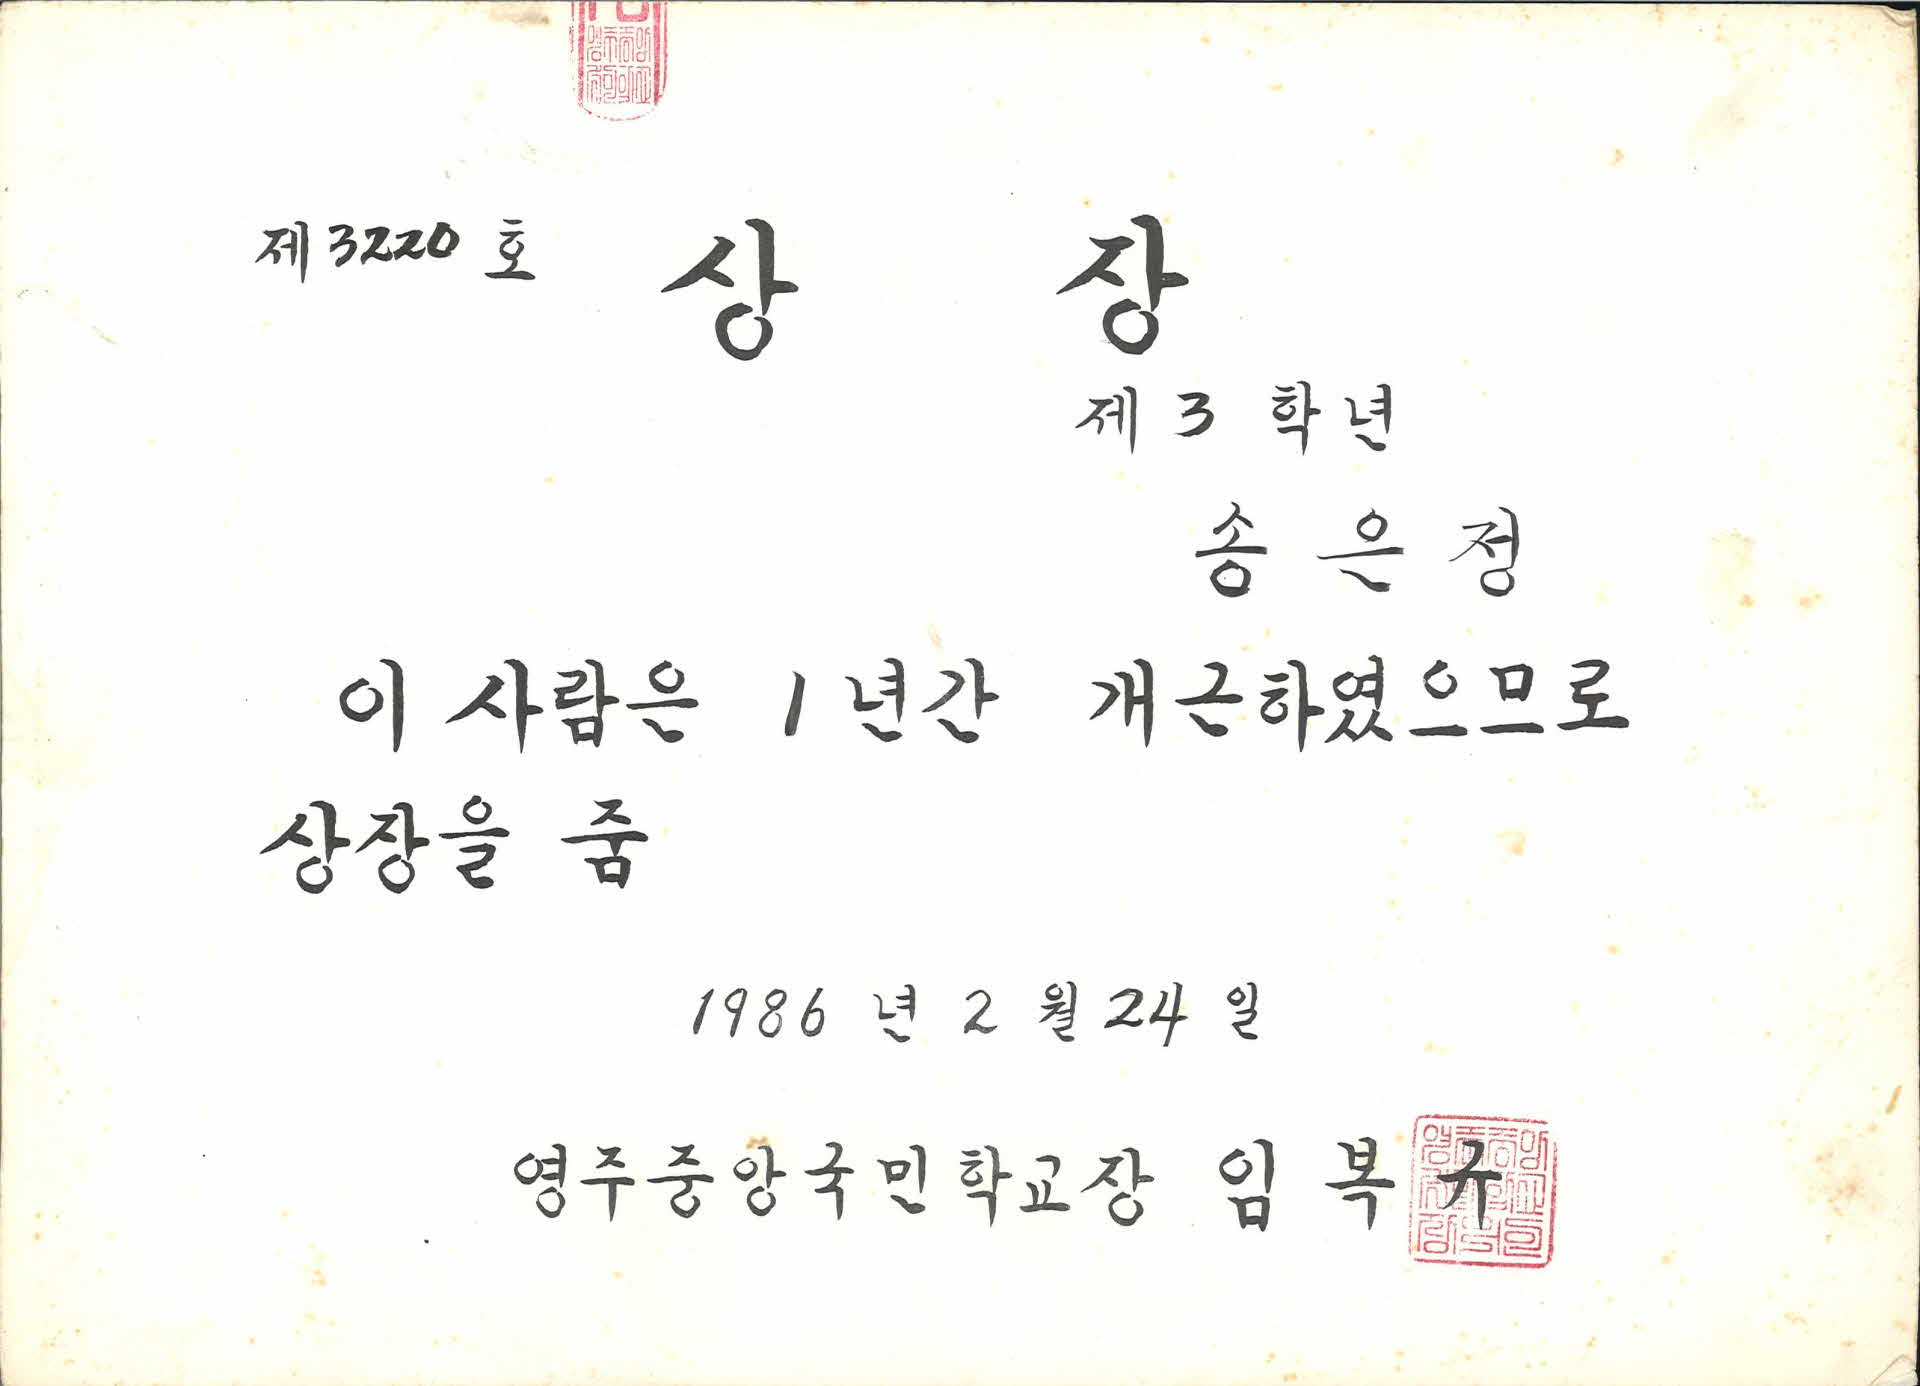 제3220호 상 장
제 3 학년
송 은 정
이 사람은 1년간 개근하였으므로
상장을 줌
1986 년 2 월 24 일
영주중앙국민학교장 임 복 규